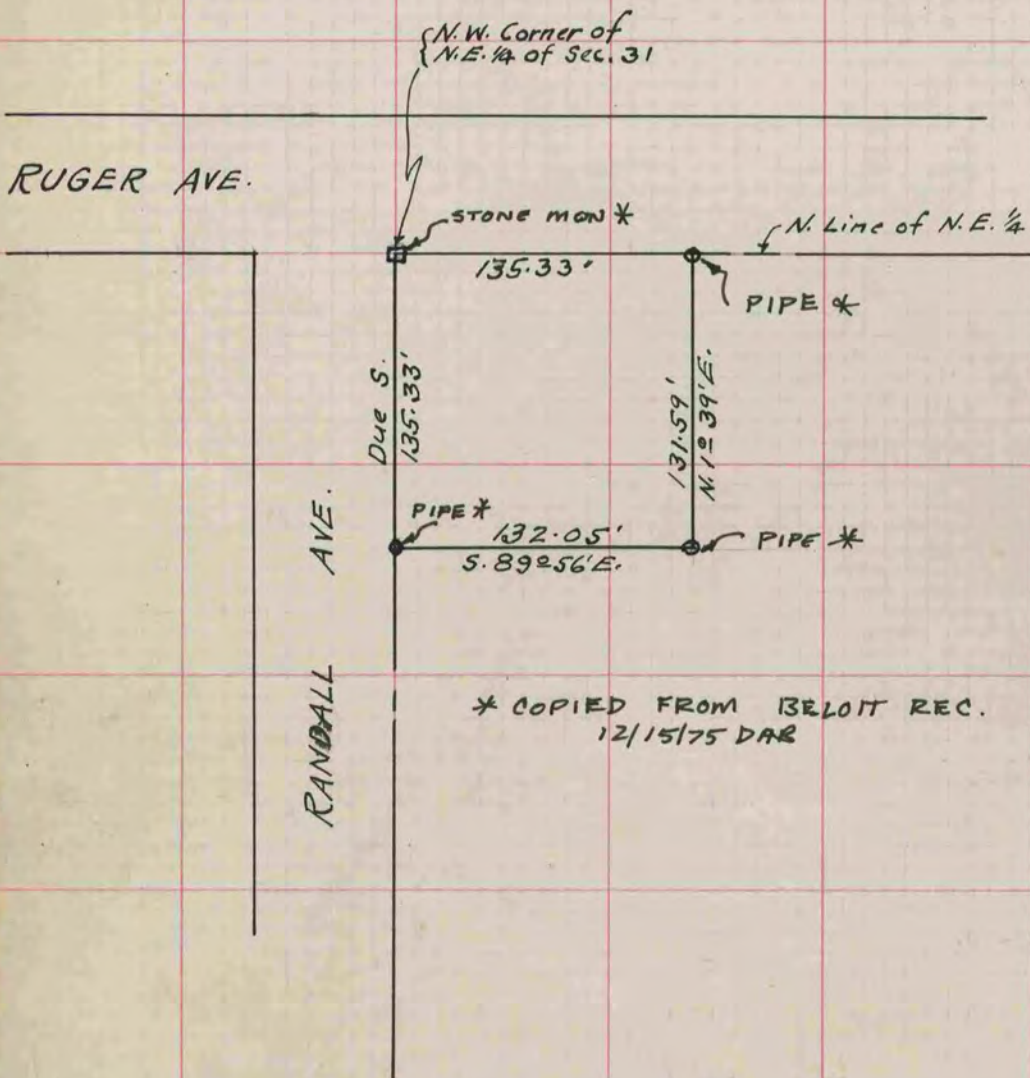 N.W. Corner of
N.E. ¼ of Sec. 31
RUGER AVE.
STONE MON *
N. Line of N.E. ¼
135.33'
PIPE *
Due S.
135.33'
131.59'
N. 1º 39' E.
PIPE *
132.05'
S. 89º 56' E.
PIPE *
RANDALL AVE.
* COPIED FROM BELOIT REC.
12/15/75 DAB